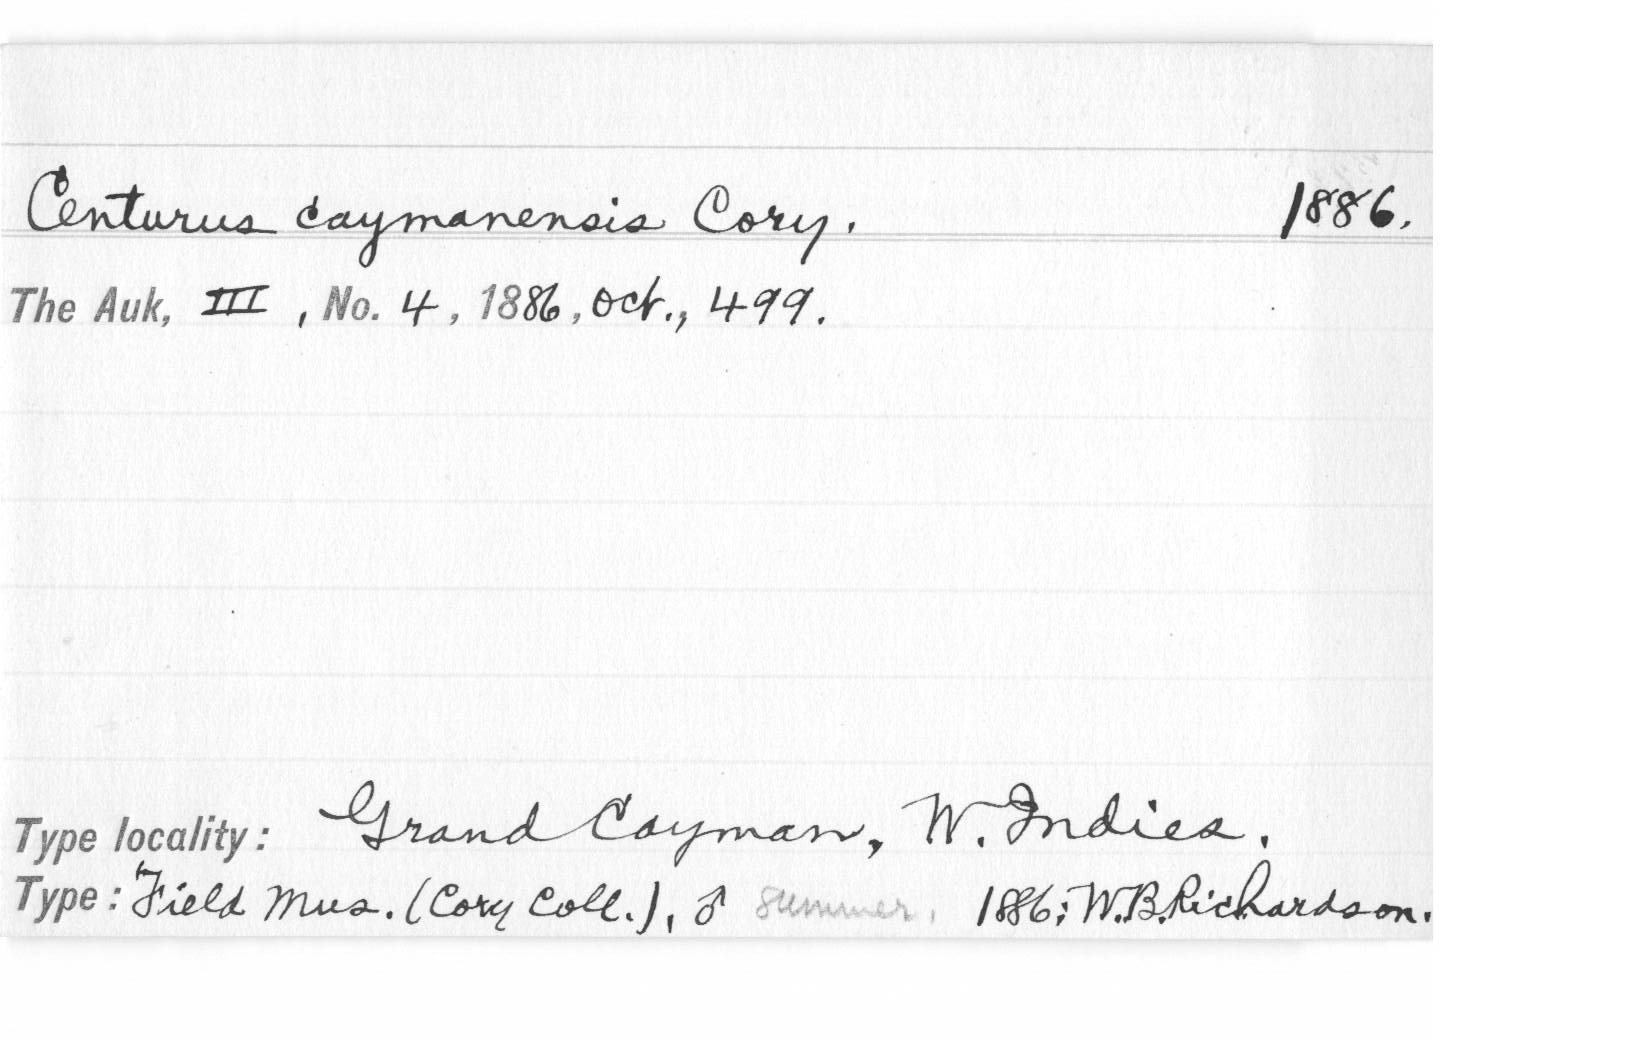 Centurus caymanensis Cory. 1886.
The Auk, III, No. 4, 1886, Oct., 499.
Type locality: Grand Cayman, W. Indies.
Type: Field Mus. (Cory Coll.), ♂ summer, 1886; W.B. Richardson.